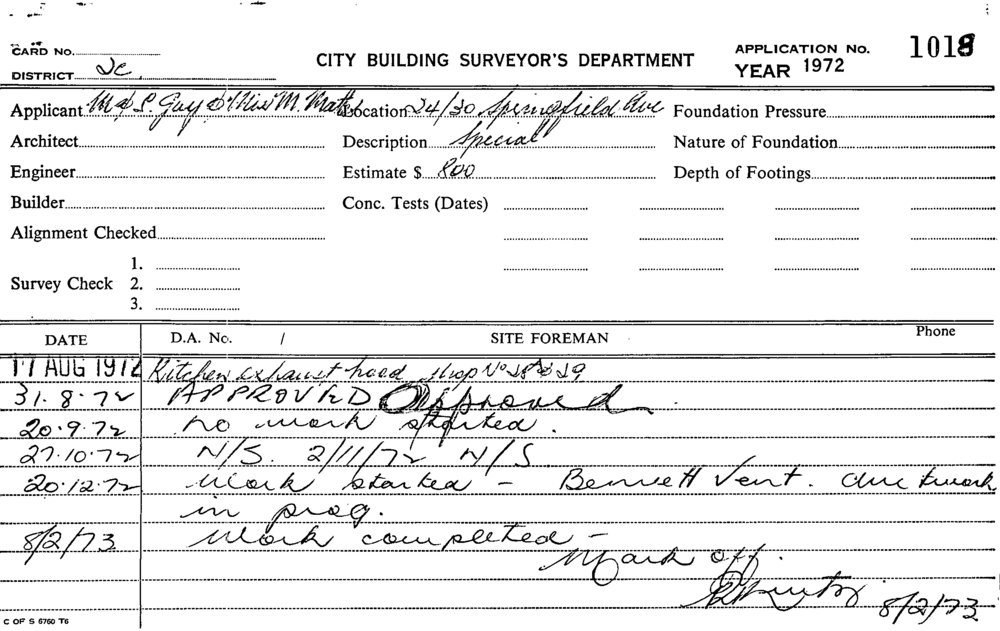 CARD No.
DISTRICT 2C.
CITY BUILDING SURVEYOR'S DEPARTMENT
APPLICATION No. 1018
YEAR 1972
Applicant P. Guy & Miss M. Location 24/30 Springfield Ave Foundation Pressure
Architect Description Special Nature of Foundation
Engineer Estimate $ 800 Depth of Footings
Builder Conc. Tests (Dates)
Alignment Checked
Survey Check 1.
2.
3.
DATE D.A. No. / SITE FOREMAN Phone
17 AUG 1972 Kitchen exhaust hood Shop No 18 & 19
31.8.72 APPROVED Approved
20.9.72 no work started.
27.10.72 N/S. 2/11/72 N/S
20.12.72 Work started – Bennett Vent. ductwork
in prog.
8/2/73 Work completed –
Mark off.
8/2/73
C OF S 6760 T6